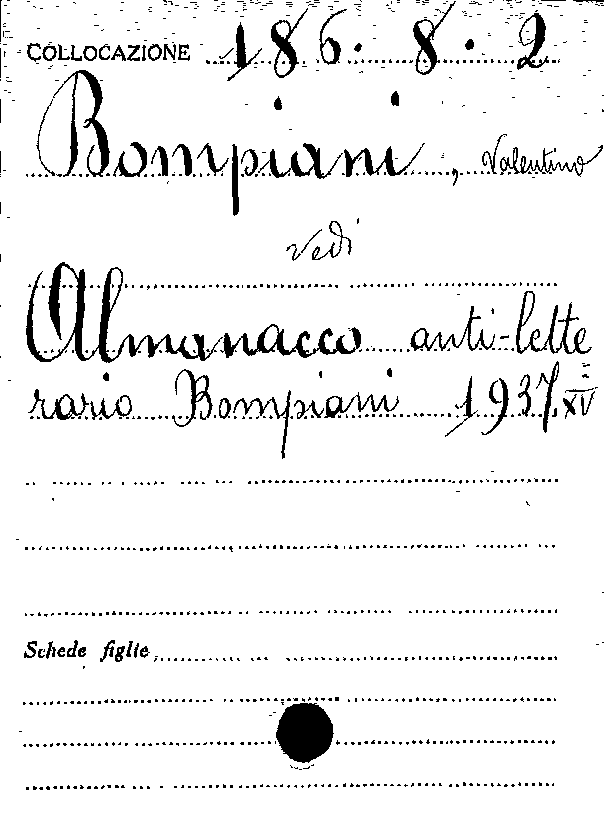 COLLOCAZIONE 186. 8. 2
Bompiani, Valentino
vedi
Almanacco anti-lette
rario Bompiani 1937=XV
Schede figlie